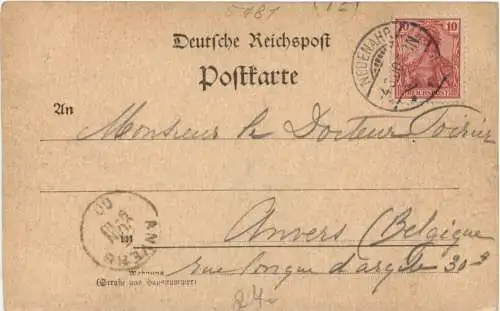 5781 (12)
Deutsche Reichspost
Postkarte
10
NEUENAHR
REICHSPOST
An
Monsieur le Docteur Poirier
00
ANVERS
in
Anvers (Belgique
rue longue d'argile 30
Wohnung
(Straße und Hausnummer)
24.-